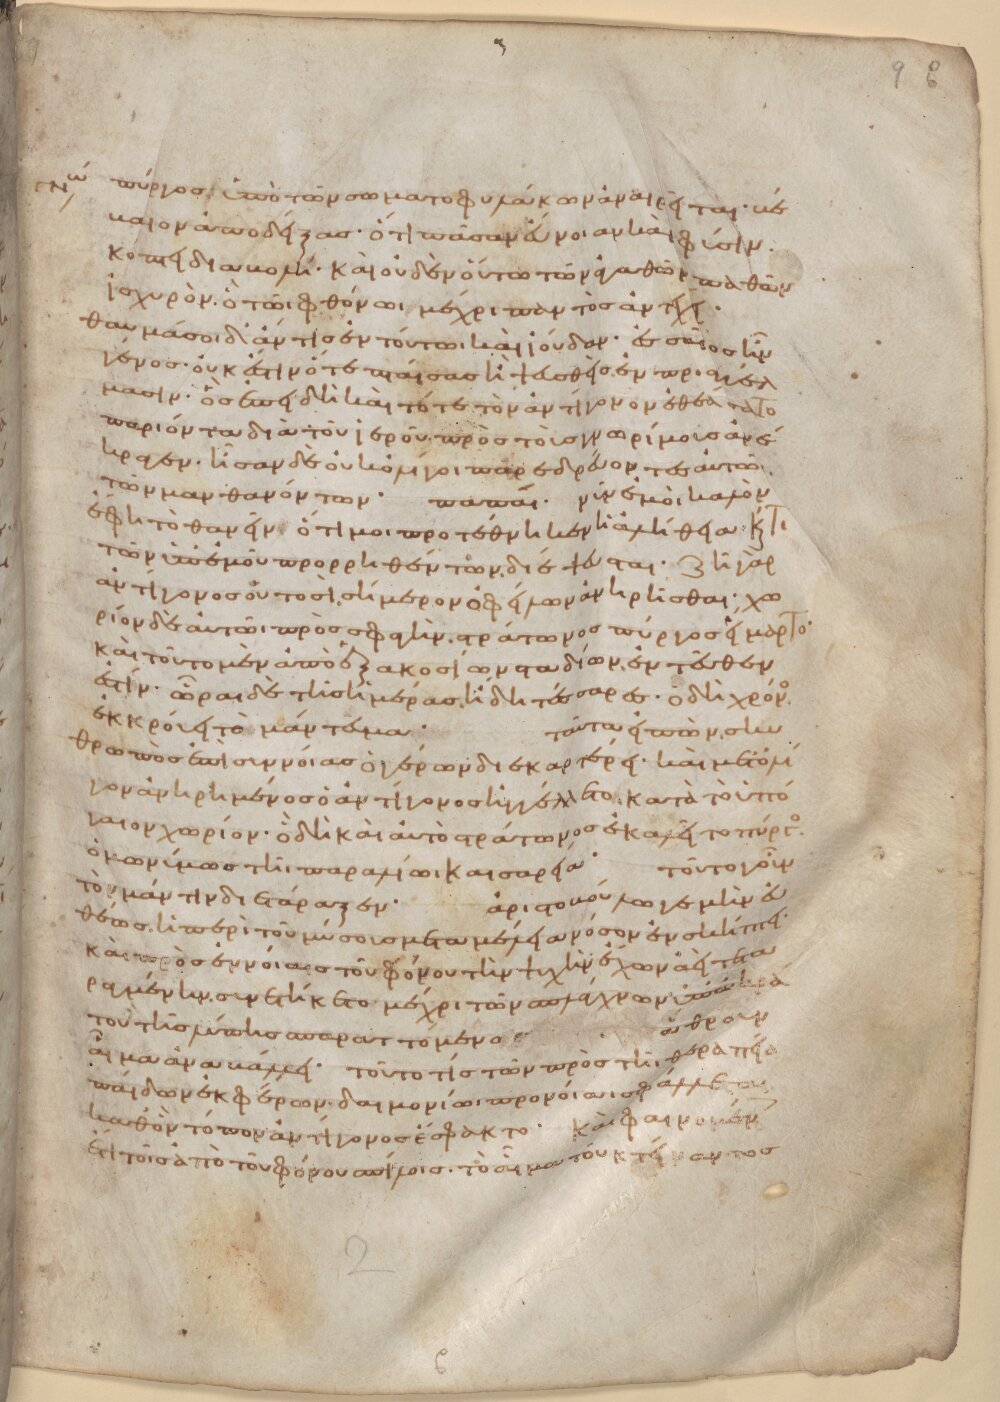 πύργος ὑπὸ τῶν σωματοφυλάκων ἀναιρεῖται· βέ
βαιον ἀποδείξας· ὅτι πᾶσαν εὔνοιαν καὶ φύσιν
κόπτει διαβολὴ· καὶ οὐδὲν οὕτω τῶν ἀγαθῶν παθῶν
ἰσχυρὸν. ὃ τῶι φθόνωι μέχρι παντὸς ἀντέχει·
θαυμάσαι δ' ἄν τις ἐν τούτωι καὶ ἰούδαν· ἐσσαῖος ἦν
γένος· οὐκ ἔστιν ὅτε πταίσας ἢ ψευσθεὶς ἐν προαγγέλ
μασιν· ὃς ἐπειδὴ καὶ τότε τὸν ἀντίγονον ἐθεάσατο
παριόντα διὰ τοῦ ἱεροῦ. πρὸς τοὺς γνωρίμους ἀνέ
κραγεν· ἦσαν δὲ οὐκ ὀλίγοι παρεδρεύοντες αὐτῶι
τῶν μανθανόντων· παπαί· νῦν ἐμοὶ καλὸν
ἔφη τὸ θανεῖν ὅτι μου προτέθνηκεν ἡ ἀλήθεια· καί τι
τῶν ὑπ' ἐμοῦ προρρηθέντων. διέψευσται· ζῆ γὰρ
ἀντίγονος οὗτος ὁ σήμερον ὀφείλων ἀνηρῆσθαι· χω
ρίον δὲ αὐτῶι πρὸς σφαγὴν. στράτωνος πύργος εἵμαρτο·
καὶ τοῦτο μὲν ἀπὸ ἑξακοσίων σταδίων. ἐντεῦθέν
ἐστιν· ὧραι δὲ τῆς ἡμέρας ἤδη τέσσαρες· ὁ δὴ χρόνος
ἐκκρούει τὸ μάντευμα· ταῦτα εἰπὼν. σκυ
θρωπὸς ἐπὶ συννοίας ὁ γέρων διεκαρτέρει· καὶ μετ' ὀλί
γον ἀνηρημένος ὁ ἀντίγονος ἠγγέλλετο. κατὰ τὸ ὑπό
γαιον χωρίον· ὃ δὴ καὶ αὐτὸ στράτωνος ἐκαλεῖτο πύργος.
ὁμωνύμως τῆι παραλίωι καισαρεία· τοῦτο γοῦν
τὸν μάντιν διετάραξεν· ἀριστοβούλω γε μὴν εὐ
θέως. ἡ περὶ τοῦ μύσους μεταμέλεια νόσον ἐνσκήπτει·
καὶ πρὸς ἐννοίας τοῦ φόνου τὴν ψυχὴν ἔχων ἀεὶ τεταραγμένην
συνετήκετο μέχρι τῶν σπλάγχνων ὑπ' ἀκρά
του τῆς λύπης σπαραττόμενος ἄθρουν
αἷμα ἀναβάλλει· τοῦτό τις τῶν πρὸς τῆι θεραπείᾳ
παίδων ἐκφέρων. δαιμονίωι προνοίαι σφάλλεται
καθ' ὃν τόπον ἀντίγονος ἔσφακτο· καὶ φαινομένοις
ἔτι τοῖς ἀπὸ τοῦ φόνου σπίλοις. τὸ αἷμα τοῦ κτείναντος